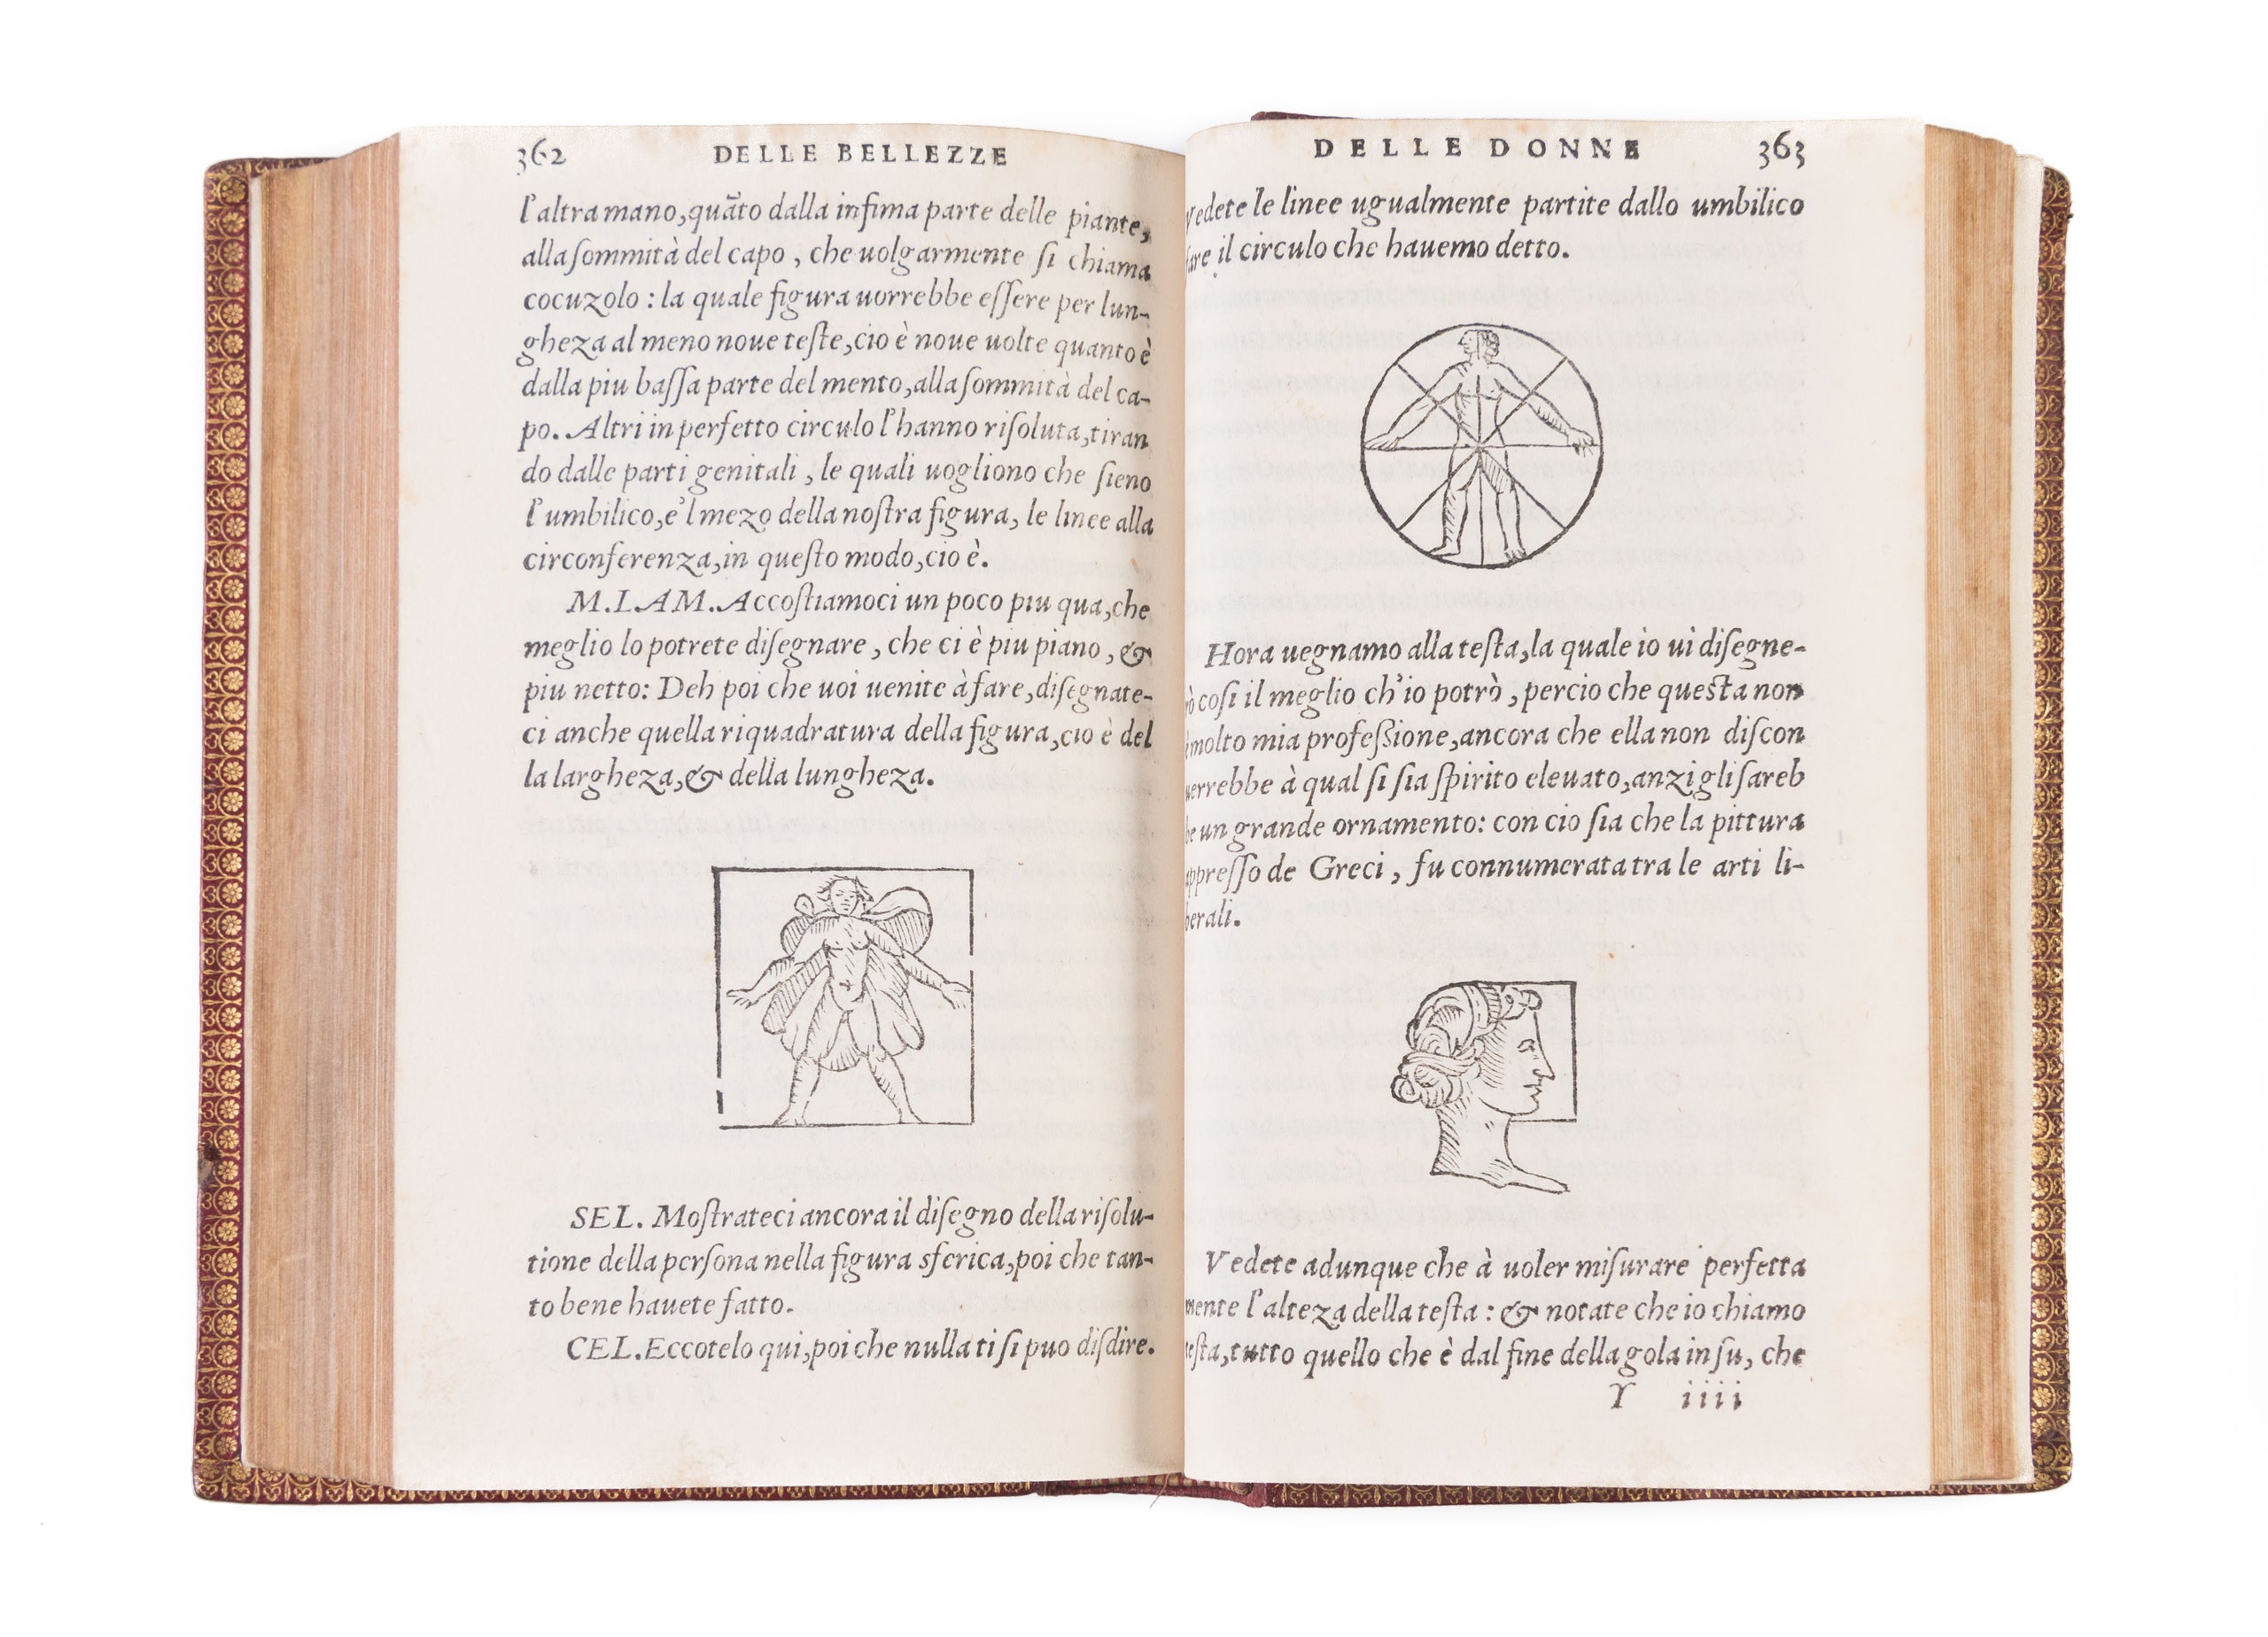 362 DELLE BELLEZZE
l'altra mano, quãto dalla infima parte delle piante,
alla ſommità del capo, che uolgarmente ſi chiama
cocuzolo: la quale figura uorrebbe eſſere per lun-
gheza al meno noue teſte, cio è noue uolte quanto è
dalla piu baſſa parte del mento, alla ſommità del ca-
po. Altri in perfetto circulo l'hanno riſoluta, tiran
do dalle parti genitali, le quali uogliono che ſieno
l'umbilico, e'l mezo della noſtra figura, le linee alla
circonferenza, in queſto modo, cio è.
M. LAM. Accoſtiamoci un poco piu qua, che
meglio lo potrete diſegnare, che ci è piu piano, &
piu netto: Deh poi che uoi uenite à fare, diſegnate-
ci anche quella riquadratura della figura, cio è del
la largheza, & della lungheza.
SEL. Moſtrateci ancora il diſegno della riſolu-
tione della perſona nella figura sferica, poi che tan-
to bene hauete fatto.
CEL. Eccotelo qui, poi che nulla ti ſi puo diſdire.
DELLE DONNE 363
Vedete le linee ugualmente partite dallo umbilico
fare il circulo che hauemo detto.
Hora uegnamo alla teſta, la quale io ui diſegne-
rò coſi il meglio ch'io potrò, percio che queſta non
è molto mia profeſſione, ancora che ella non diſcon
uerrebbe à qual ſi ſia ſpirito eleuato, anzi gli ſareb
be un grande ornamento: con cio ſia che la pittura
appreſſo de Greci, fu connumerata tra le arti li-
berali.
Vedete adunque che à uoler miſurare perfetta
mente l'alteza della teſta: & notate che io chiamo
teſta, tutto quello che è dal fine della gola in ſu, che
Y iiii